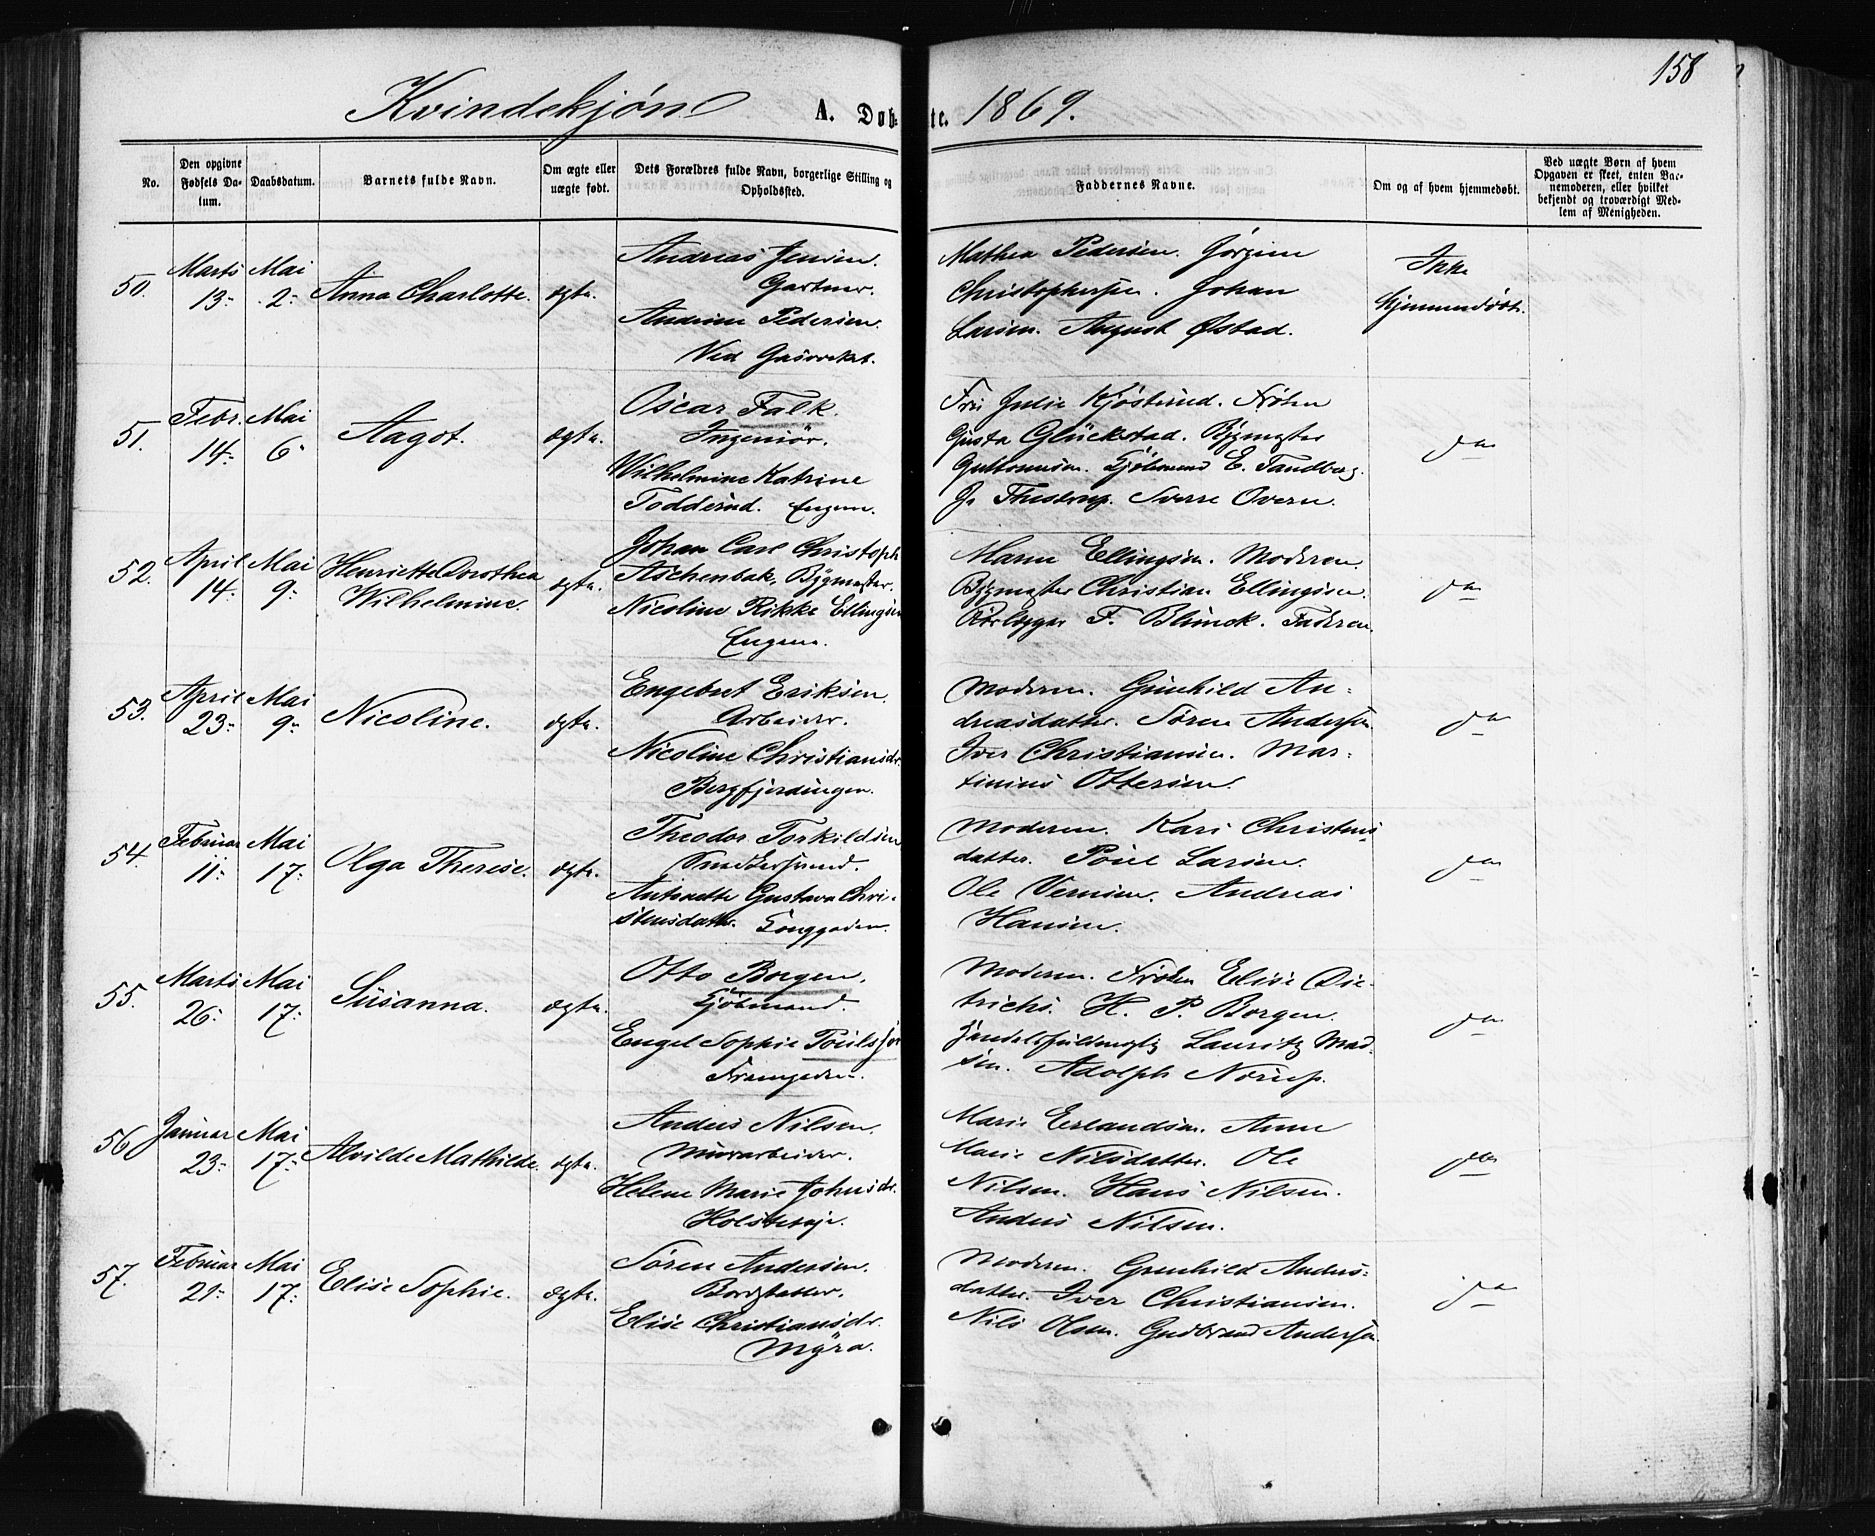 158
Kvindekjøn A. Døbte. 1869.
No.
Den opgivne Fødsels Datum.
Daabsdatum.
Barnets fulde Navn.
Om ægte eller uægte født.
Dets Forældres fulde Navn, borgerlige Stilling og Opholdssted.
Faddernes Navne.
Om og af hvem hjemmedøbt.
Ved uægte Børn af hvem Opgaven er skeet, enten Barnemoderen, eller hvilket bekjendt og troværdigt Medlem af Menigheden.
50. Marts 13. Mai 2. Anna Charlotte. ægte.
Andreas Jensen.
Gartner.
Andrine Pedersen.
Ved Gasverket.
Mathea Pedersen. Jörgine
Christophersen. Johan
Larsen. August Østad.
Ikke
hjemmedøbt.
51. Febr. 14. Mai 6. Aagot. ægte.
Oscar Falk.
Ingeniör.
Wilhelmine Katrine
Todderud. Engene.
Fru Julie Kjösterud. Frøken
Gusta Glückstad. Bygmester
Guttormsen. Kjöbmand E. Tandberg.
Js. Thestrup. Sverre Overn.
do
52. April 14. Mai 9. Henriette Dorothea Wilhelmine. ægte.
Johan Carl Christoph
Aschenbak. Bygmester.
Nicoline Rikke Ellingsen
Engene.
Maren Ellingsen. Moderen.
Bygmester Christian Ellingsen.
Rørlægger F. Blunck. Faderen.
do
53. April 23. Mai 9. Nicoline. ægte.
Engebret Eriksen.
Arbeider.
Nicoline Christiansdr.
Bergfjerdingen.
Moderen. Gunhild An-
dreasdatter. Sören Andersen
Iver Christiansen. Mar-
tinius Ottersen.
do
54. Februar 11. Mai 17. Olga Therese. ægte.
Theodor Torkildsen
Smedersvend.
Antonette Gustava Chri-
stensdatter. Tonggaden.
Moderen. Kari Christens-
datter. Poul Larsen.
Ole Vernsen. Andreas
Hansen.
do
55. Marts 26. Mai 17. Susanna. ægte.
Otto Borgen.
Kjöbmand.
Engel Sophie Poulsson
Tramgaden.
Moderen. Frøken Elise Die-
trichs. H. P. Borgen.
Handelsfuldmægtig Lauritz Mad-
sen. Adolph Norup.
do
56. Januar 23. Mai 17. Alvilde Mathilde. ægte.
Anders Nilsen.
Murarbeider.
Helene Marie Johnsdr.
Holstetøje.
Marie Erlandsen. Anne
Marie Nilsdatter. Ole
Nilsen. Hans Nilsen.
Anders Nilsen.
do
57. Februar 21. Mai 17. Elise Sophie. ægte.
Sören Andersen.
Bordstabler.
Elise Christiansdr.
Myra.
Moderen. Gunhild Anders-
datter. Iver Christiansen.
Nils Olsen. Gudbrand Andersen
do